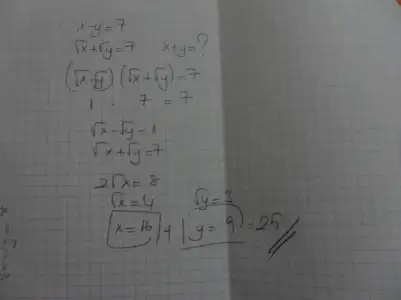 x-y=7
√x+√y=7 x+y=?
(√x-√y)(√x+√y)=7
1 . 7 = 7
√x-√y=1
√x+√y=7
2√x=8
√x=4 √y=3
x=16 + y=9 =25